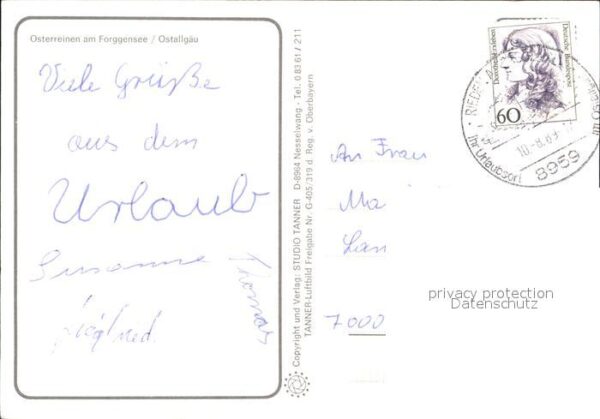 Osterreinen am Forggensee / Ostallgäu
Viele Grüße
aus dem
Urlaub
Susanne
Thomas
Siegfried
Copyright und Verlag: STUDIO TANNER D-8964 Nesselwang · Tel. 0 83 61 / 211
TANNER-Luftbild Freigabe Nr. G-405/319 d. Reg. v. Oberbayern
Dorothea Erxleben
Deutsche Bundespost
60
RIEDEN
Ihr Urlaubsort
8959
An Frau
Ma
Lan
7000
privacy protection
Datenschutz